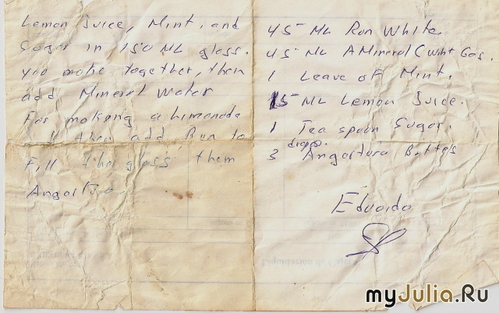 Lemon Juice, Mint, and
Sugar in 150 ML glass.
you make together, then
add Mineral Water
For making a Limonade
then add Run to
Fill the glass them
Angostura
45 ML Run White
45 ML A Mineral C Wiht Gas.
1 Leave of Mint.
15 ML Lemon Juice.
1 Tea spoun Sugar.
drops.
3 Angostura Botte's
Eduardo
myJulia.Ru